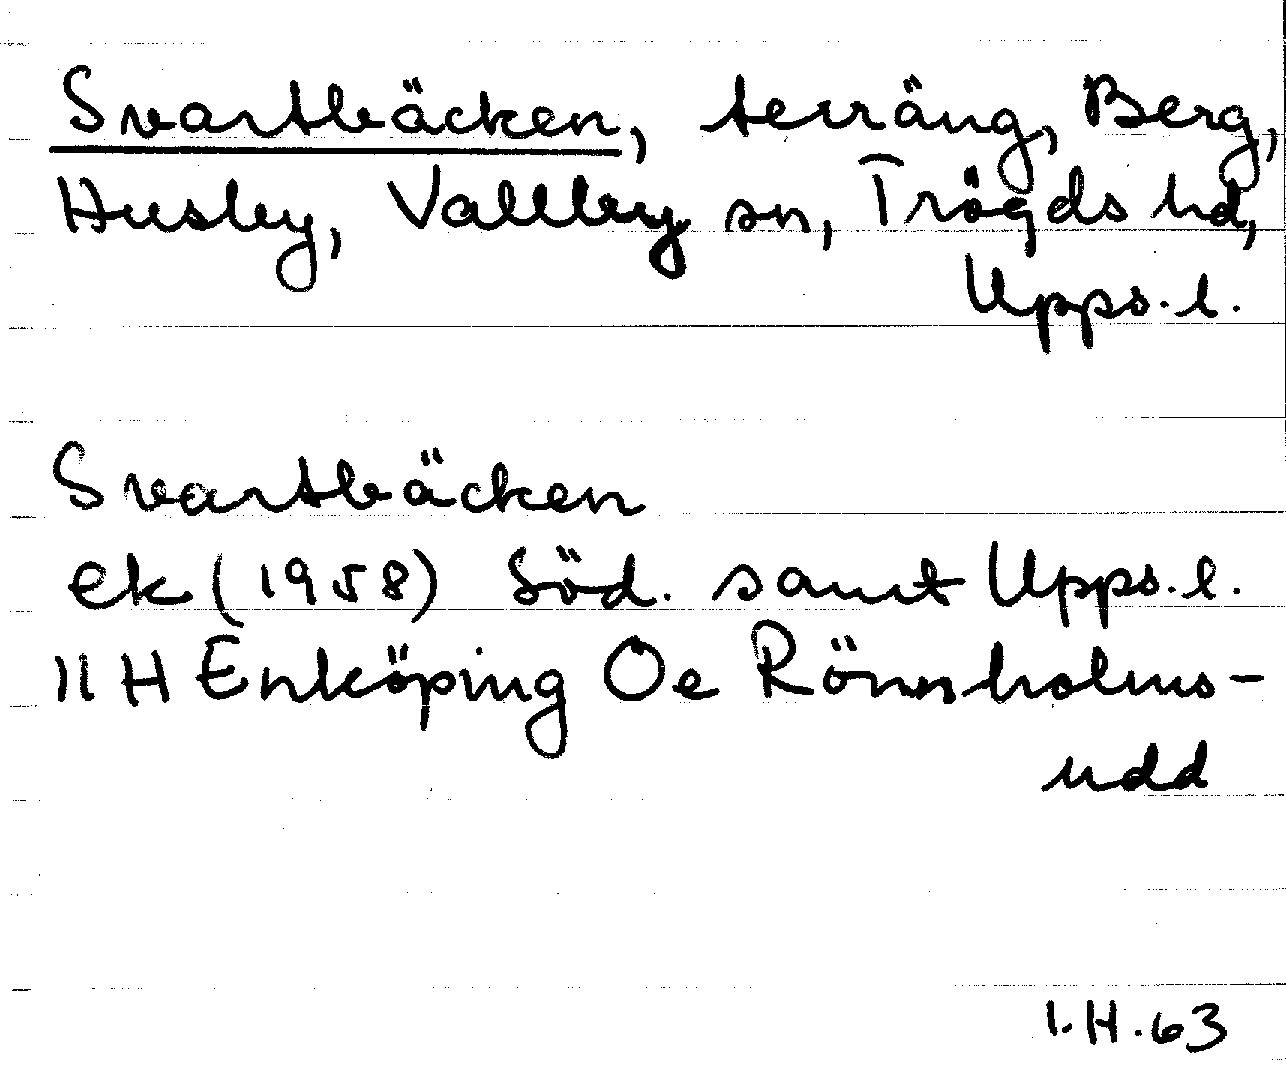 Svartbäcken, terräng, Berg,
Husby, Vallby sn, Trögds hd,
Upps. l.
Svartbäcken
ek (1958) Söd. samt Upps. l.
11 H Enköping Öe Rönnholms-
udd
I. H. 63